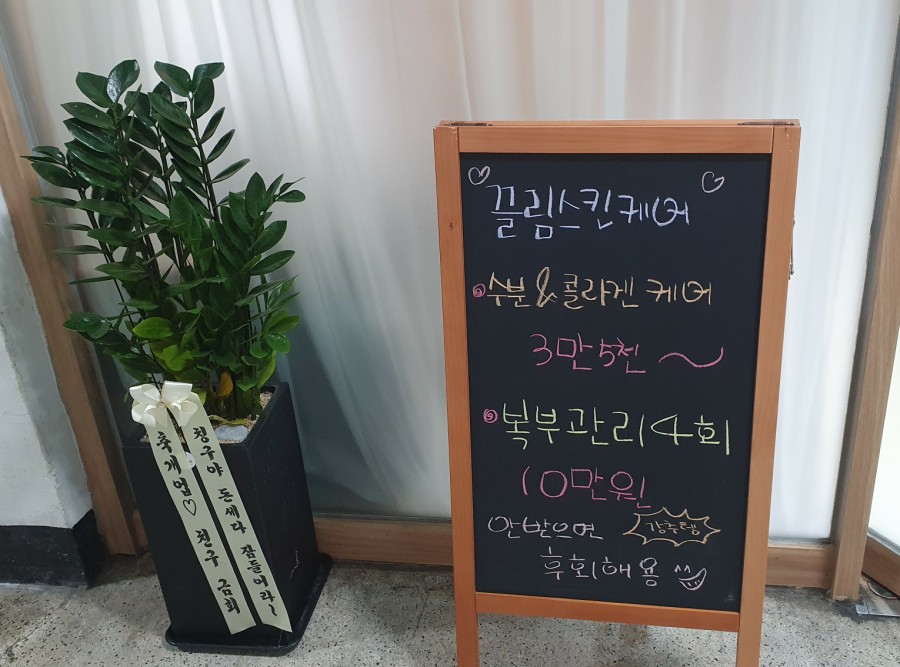 끌림스킨케어
수분&콜라겐 케어
3만 5천 ~
복부관리 4회
10만원
안받으면 강추템
후회해용
축개업♡ 친구 금희
칭구야 돈세다 잠들어라~